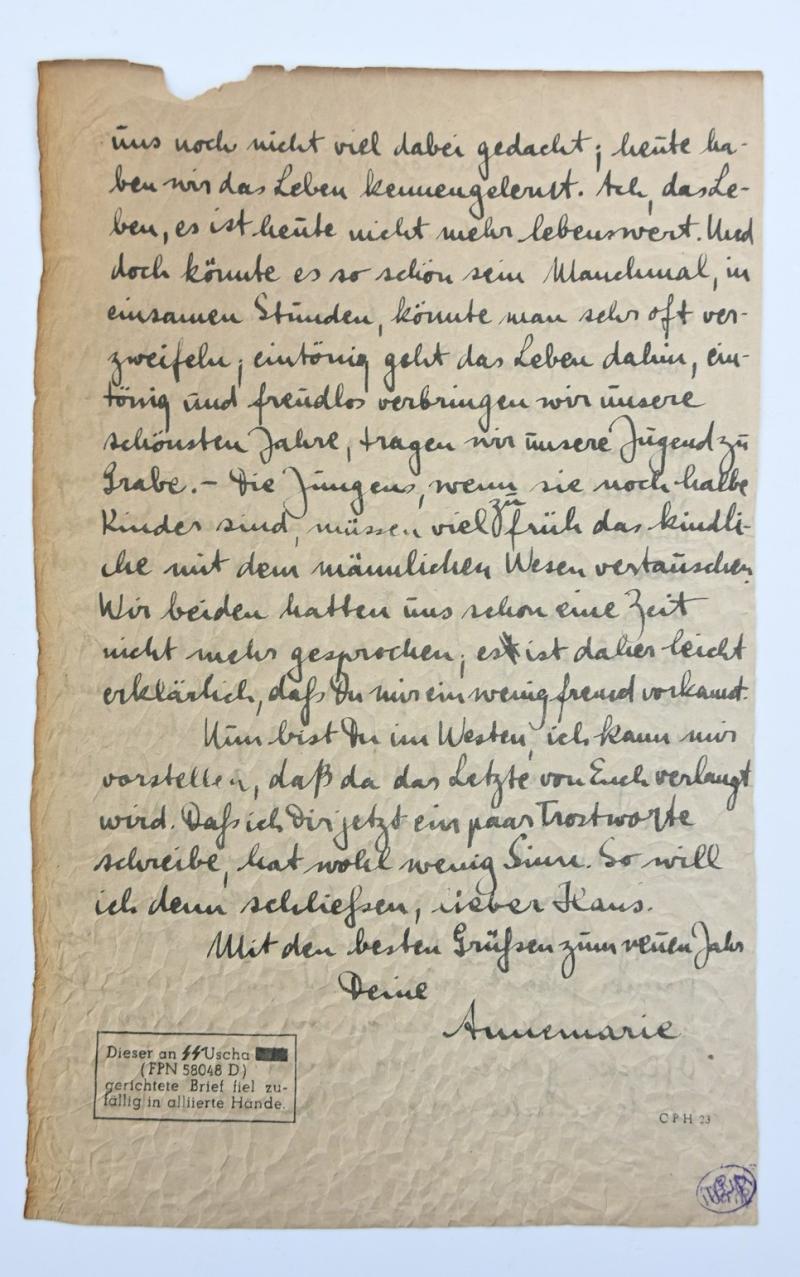 uns noch nicht viel dabei gedacht; heute ha-
ben wir das Leben kennengelernt. Ach, das Le-
ben, es ist heute nicht mehr lebenswert. Und
doch könnte es so schön sein Manchmal, in
einsamen Stunden, könnte man sehr oft ver-
zweifeln; eintönig geht das Leben dahin, ein-
tönig und freudlos verbringen wir unsere
schönsten Jahre, tragen wir unsere Jugend zu
Grabe.- Die Jungens, wenn sie noch halbe
Kinder sind, müssen viel zu früh das kindli-
che mit dem männlichen Wesen vertauschen.
Wir beiden hatten uns schon eine Zeit
nicht mehr gesprochen; es ist daher leicht
erklärlich, dafs Du mir ein wenig fremd vorkamst.
Nun bist Du im Westen, ich kann mir
vorstellen, daß da das Letzte von Euch verlangt
wird. Dafs ich Dir jetzt ein paar Trostworte
schreibe, hat wohl wenig Sinn. So will
ich denn schliefsen, lieber Hans.
Mit den besten Grüfsen zum neuen Jahr
Deine
Annemarie
Dieser an SS Uscha
(FPN 58048 D)
gerichtete Brief fiel zu-
fällig in alliierte Hände.
CPH 23